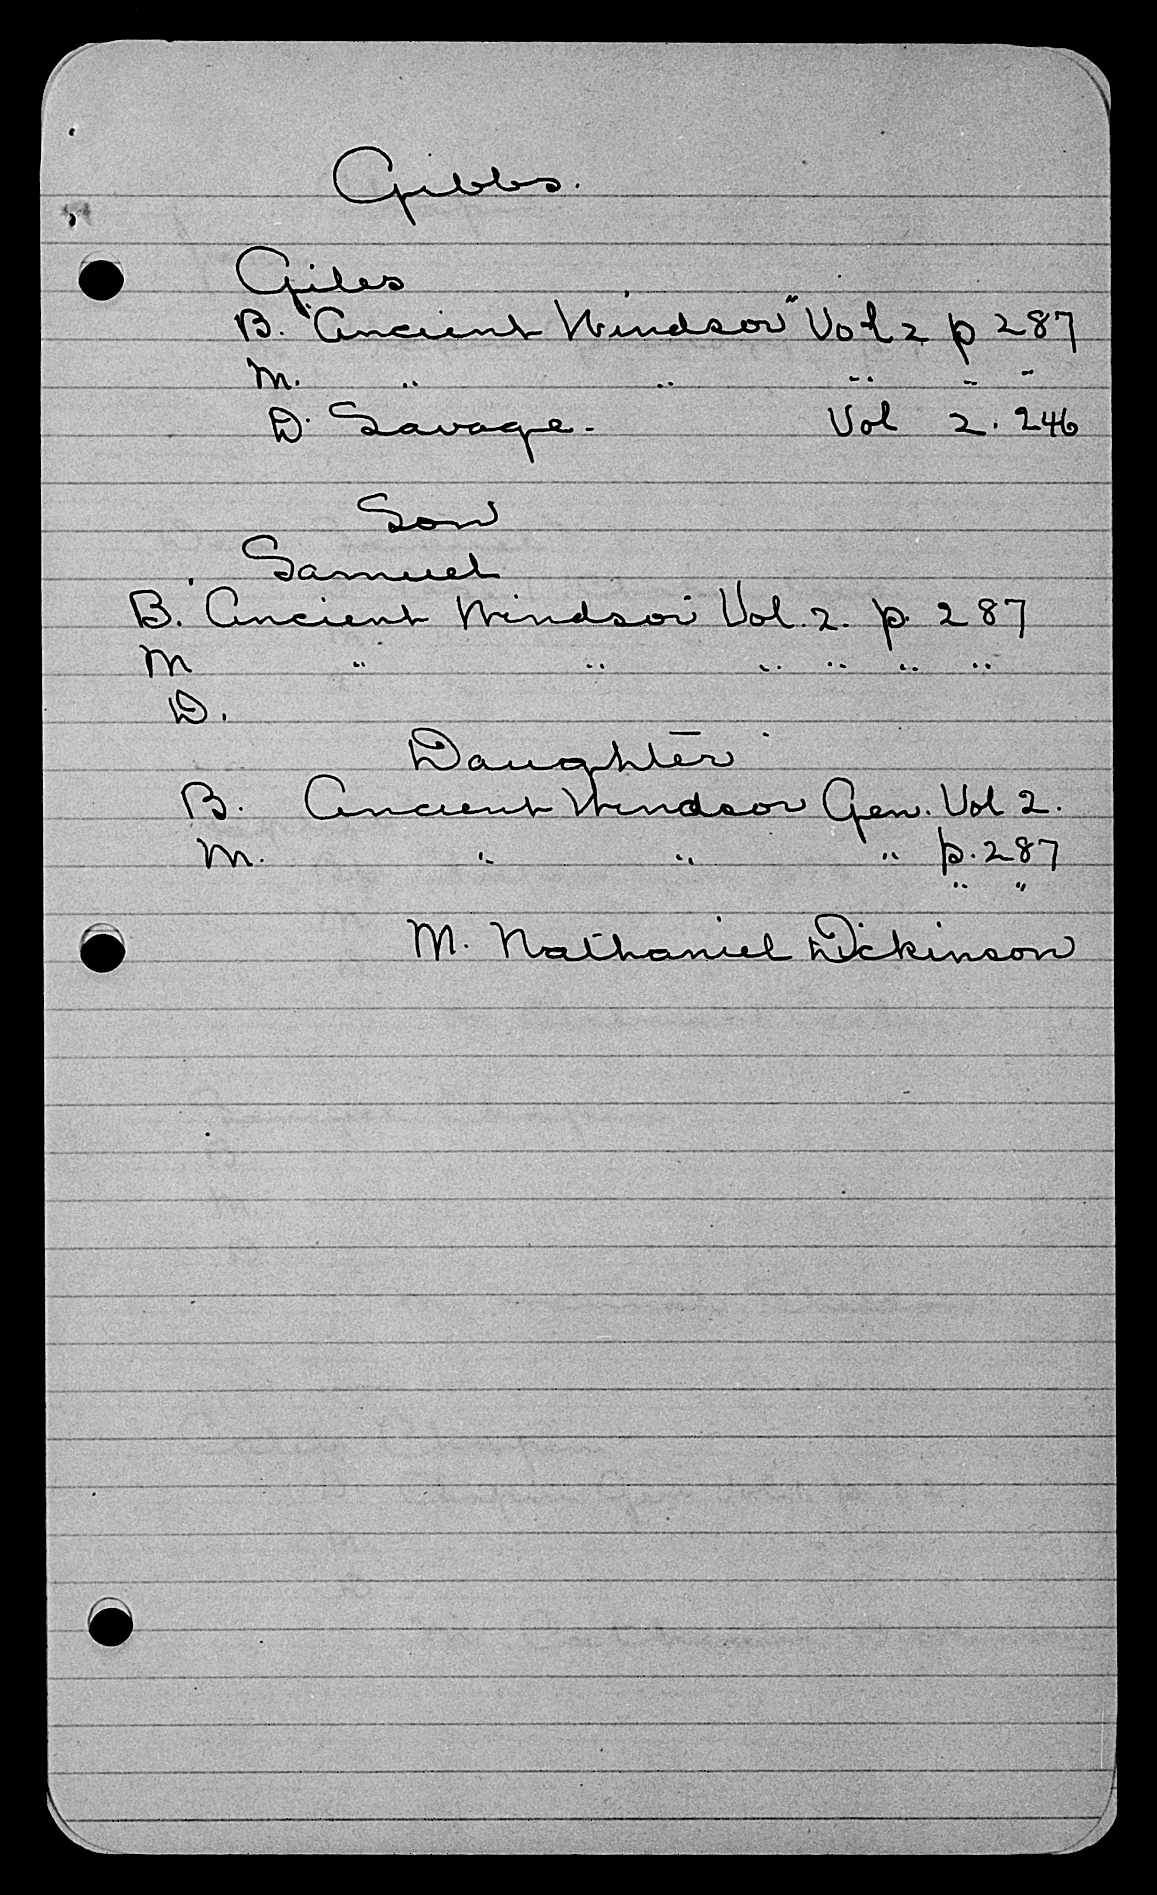 Gibbs.
Giles
B. "Ancient Windsor" Vol 2 p 287
M. " " " " "
D. Savage - Vol 2. 246
Son
Samuel
B. "Ancient Windsor" Vol. 2. p. 287
M " " " " " "
D.
Daughter
B. Ancient Windsor Gen. Vol 2.
M. " " " p. 287
" "
M. Nathaniel Dickinson